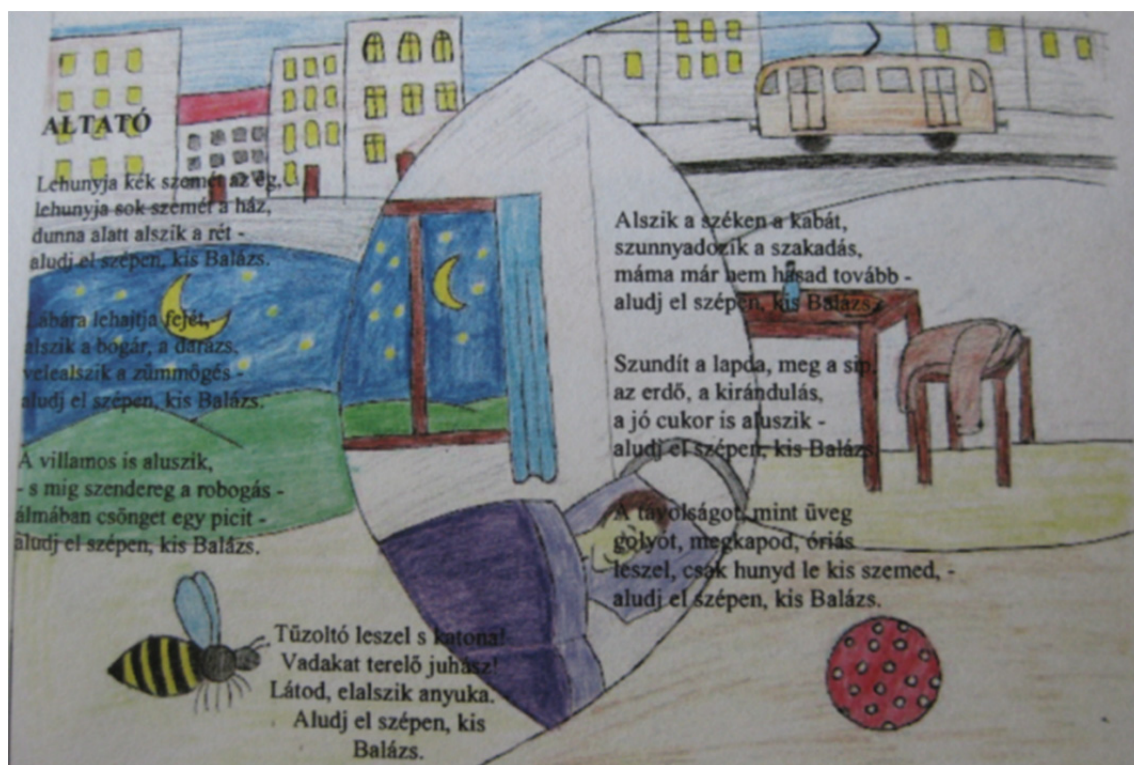 ALTATÓ
Lehunyja kék szemét az ég,
lehunyja sok szemét a ház,
dunna alatt alszik a rét -
aludj el szépen, kis Balázs.
Lábára lehajtja fejét,
alszik a bogár, a darázs,
velealszik a zümmögés -
aludj el szépen, kis Balázs.
A villamos is aluszik,
- s mig szendereg a robogás -
álmában csönget egy picit -
aludj el szépen, kis Balázs.
Alszik a széken a kabát,
szunnyadozik a szakadás,
máma már nem hasad tovább -
aludj el szépen, kis Balázs.
Szundít a lapda, meg a sip,
az erdő, a kirándulás,
a jó cukor is aluszik -
aludj el szépen, kis Balázs.
A távolságot, mint üveg
golyót, megkapod, óriás
leszel, csak hunyd le kis szemed, -
aludj el szépen, kis Balázs.
Tűzoltó leszel s katona!
Vadakat terelő juhász!
Látod, elalszik anyuka.
Aludj el szépen, kis
Balázs.